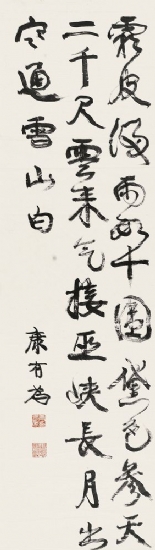 霜皮溜雨四十圍黛色參天
二千尺雲来气接巫峽長月出
寒通雪山白
康有為